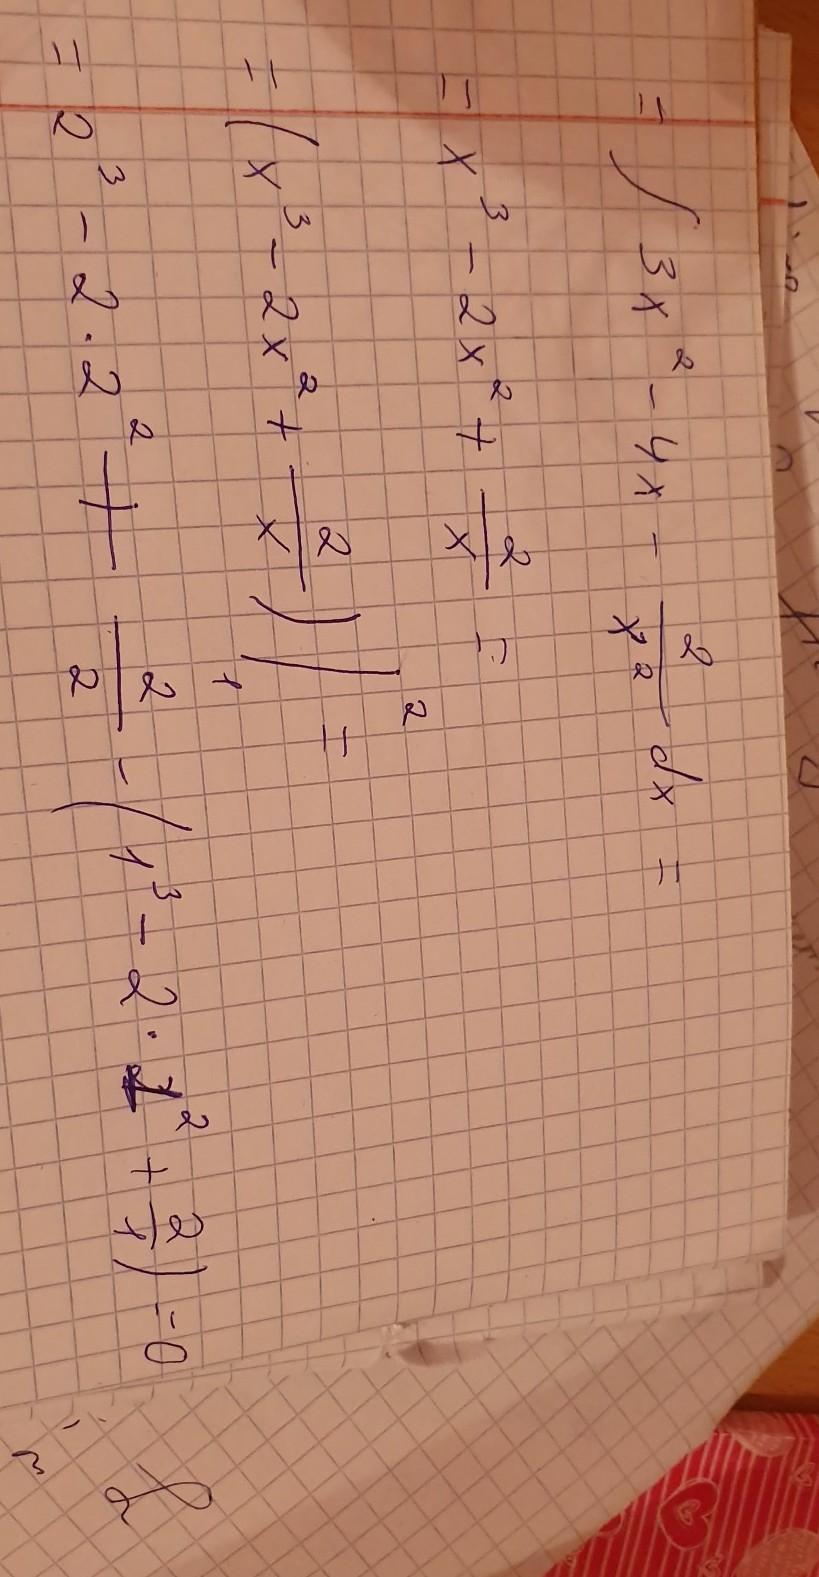 = ∫ 3x² - 4x - 2/x² dx =
= x³ - 2x² + 2/x =
= (x³ - 2x² + 2/x) |₁² =
= 2³ - 2·2² + 2/2 - (1³ - 2·1² + 2/1) = 0